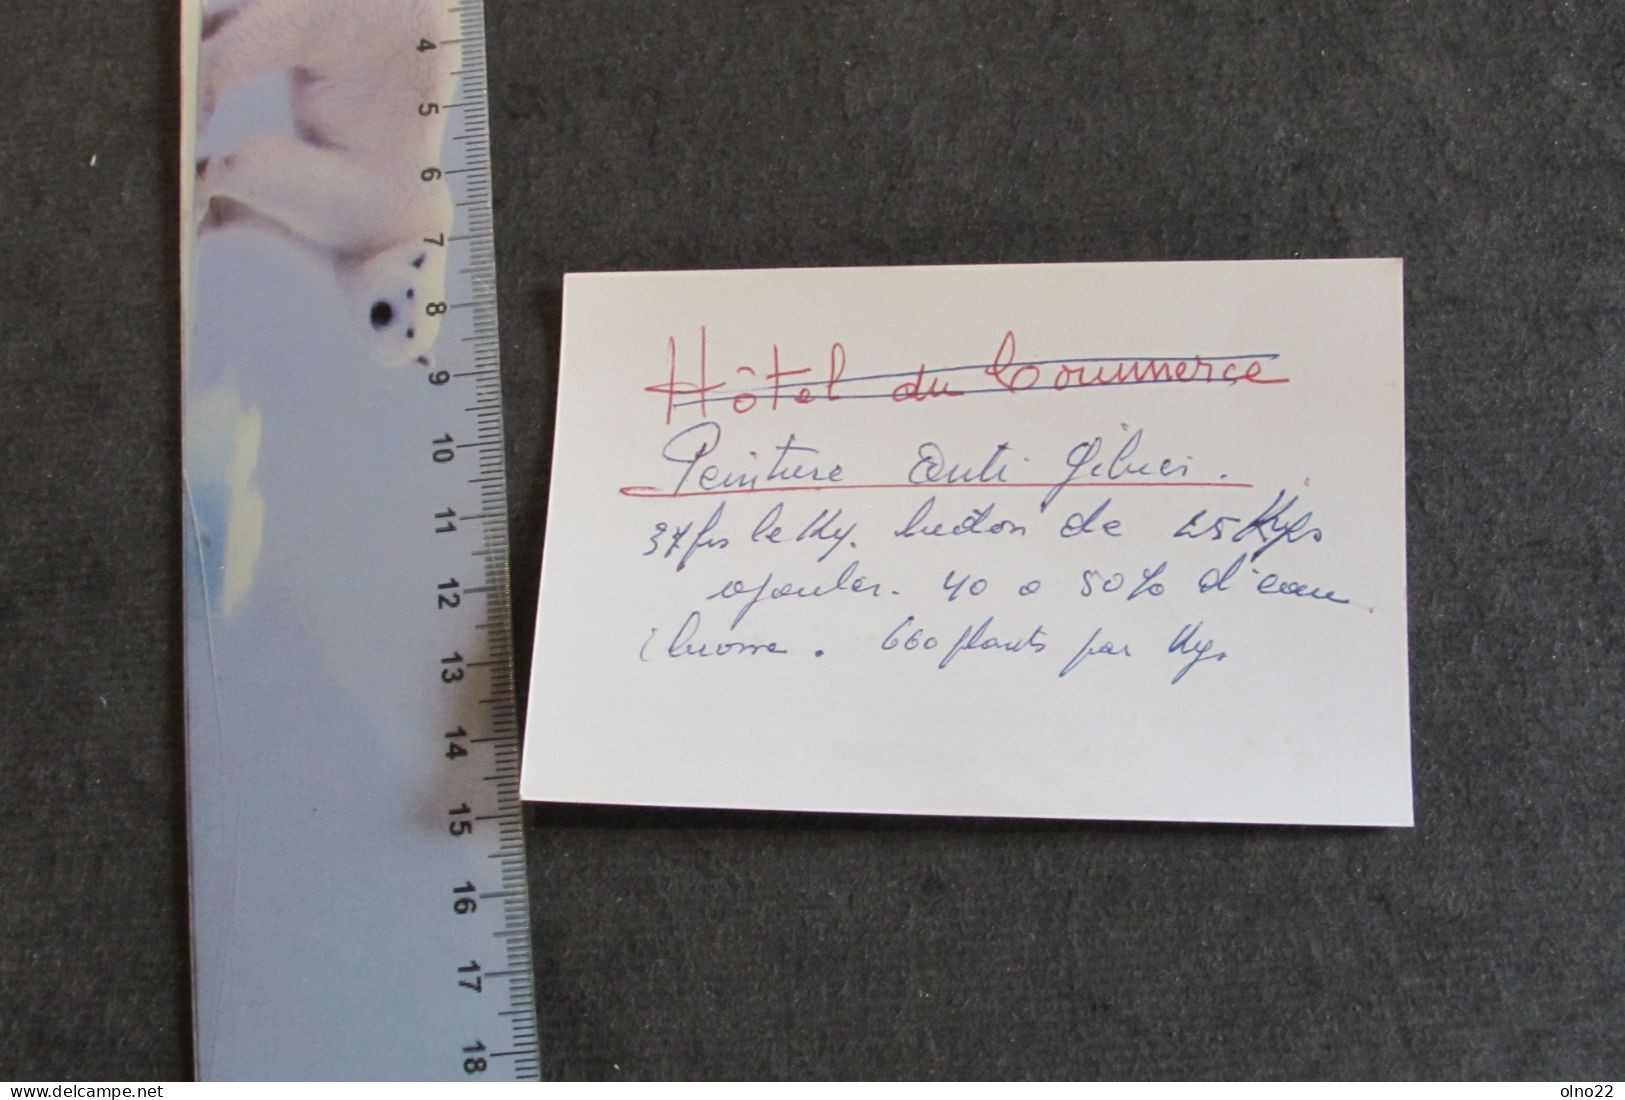 4
5
6
7
8
9
10
11
12
13
14
15
16
17
18
Hôtel du Commerce
Peinture Anti Gibier.
37 frs le Kg. bidon de 25 Kgs
ajouter. 40 a 50% d'eau
brosse. 660 plants par Kgs
www.delcampe.net
olno22